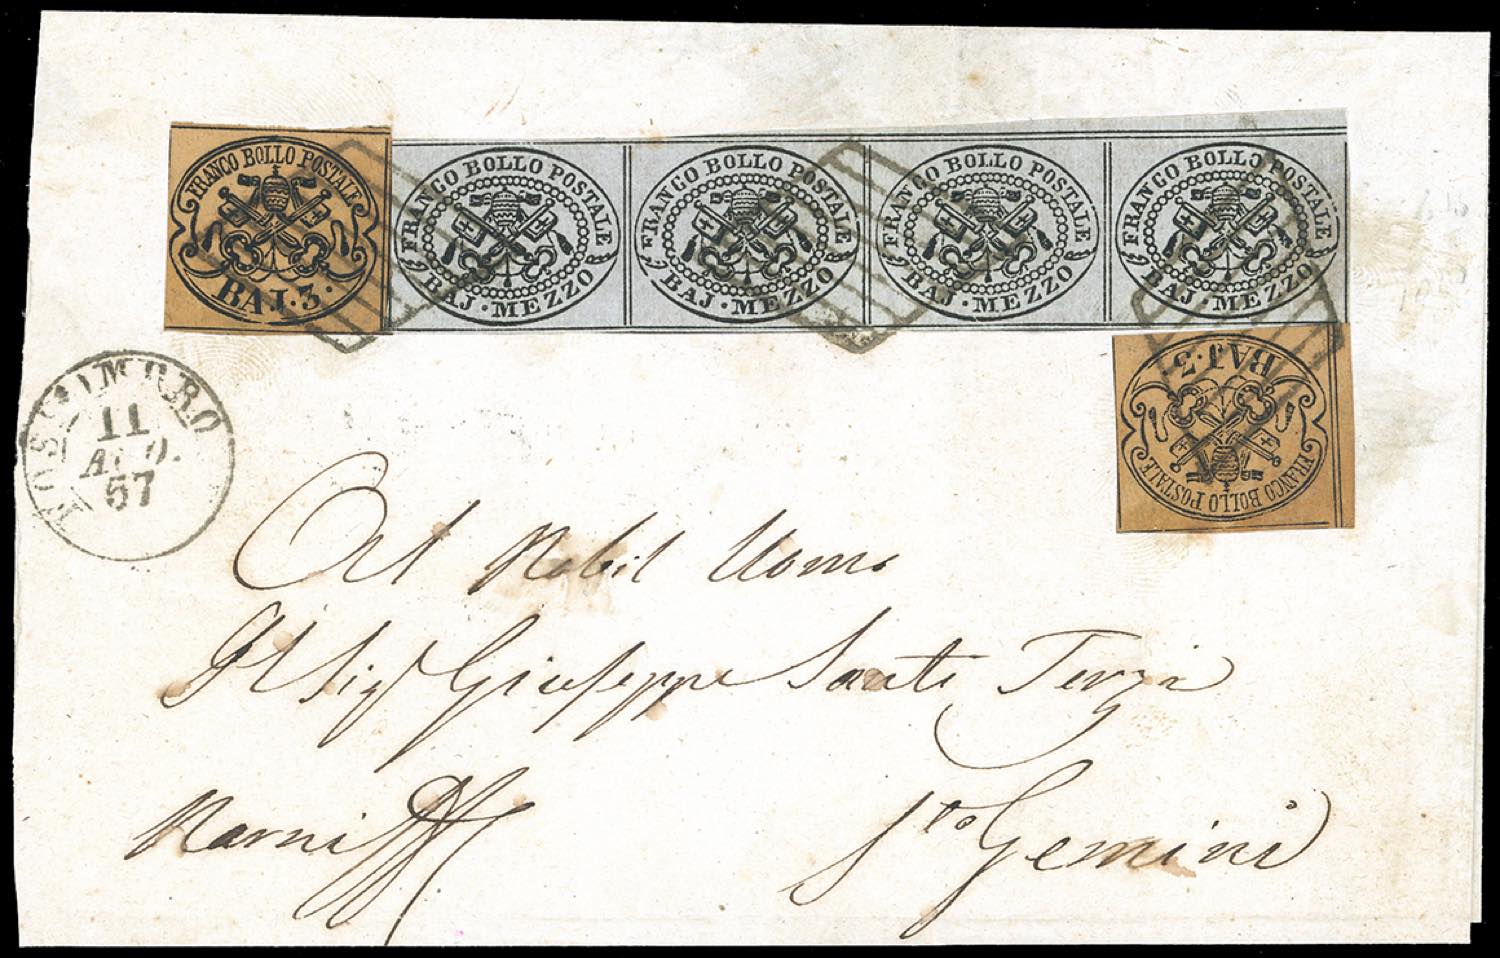 FRANCO BOLLO POSTALE
BAJ. 3.
FRANCO BOLLO POSTALE
BAJ. MEZZO
FRANCO BOLLO POSTALE
BAJ. MEZZO
FRANCO BOLLO POSTALE
BAJ. MEZZO
FRANCO BOLLO POSTALE
BAJ. MEZZO
FRANCO BOLLO POSTALE
BAJ. 3.
FOSSOMBRO
11
AGO.
57
Al Nobil Uomo
Il Sig Giuseppe Santi Terzi
Narni
Sto Gemini